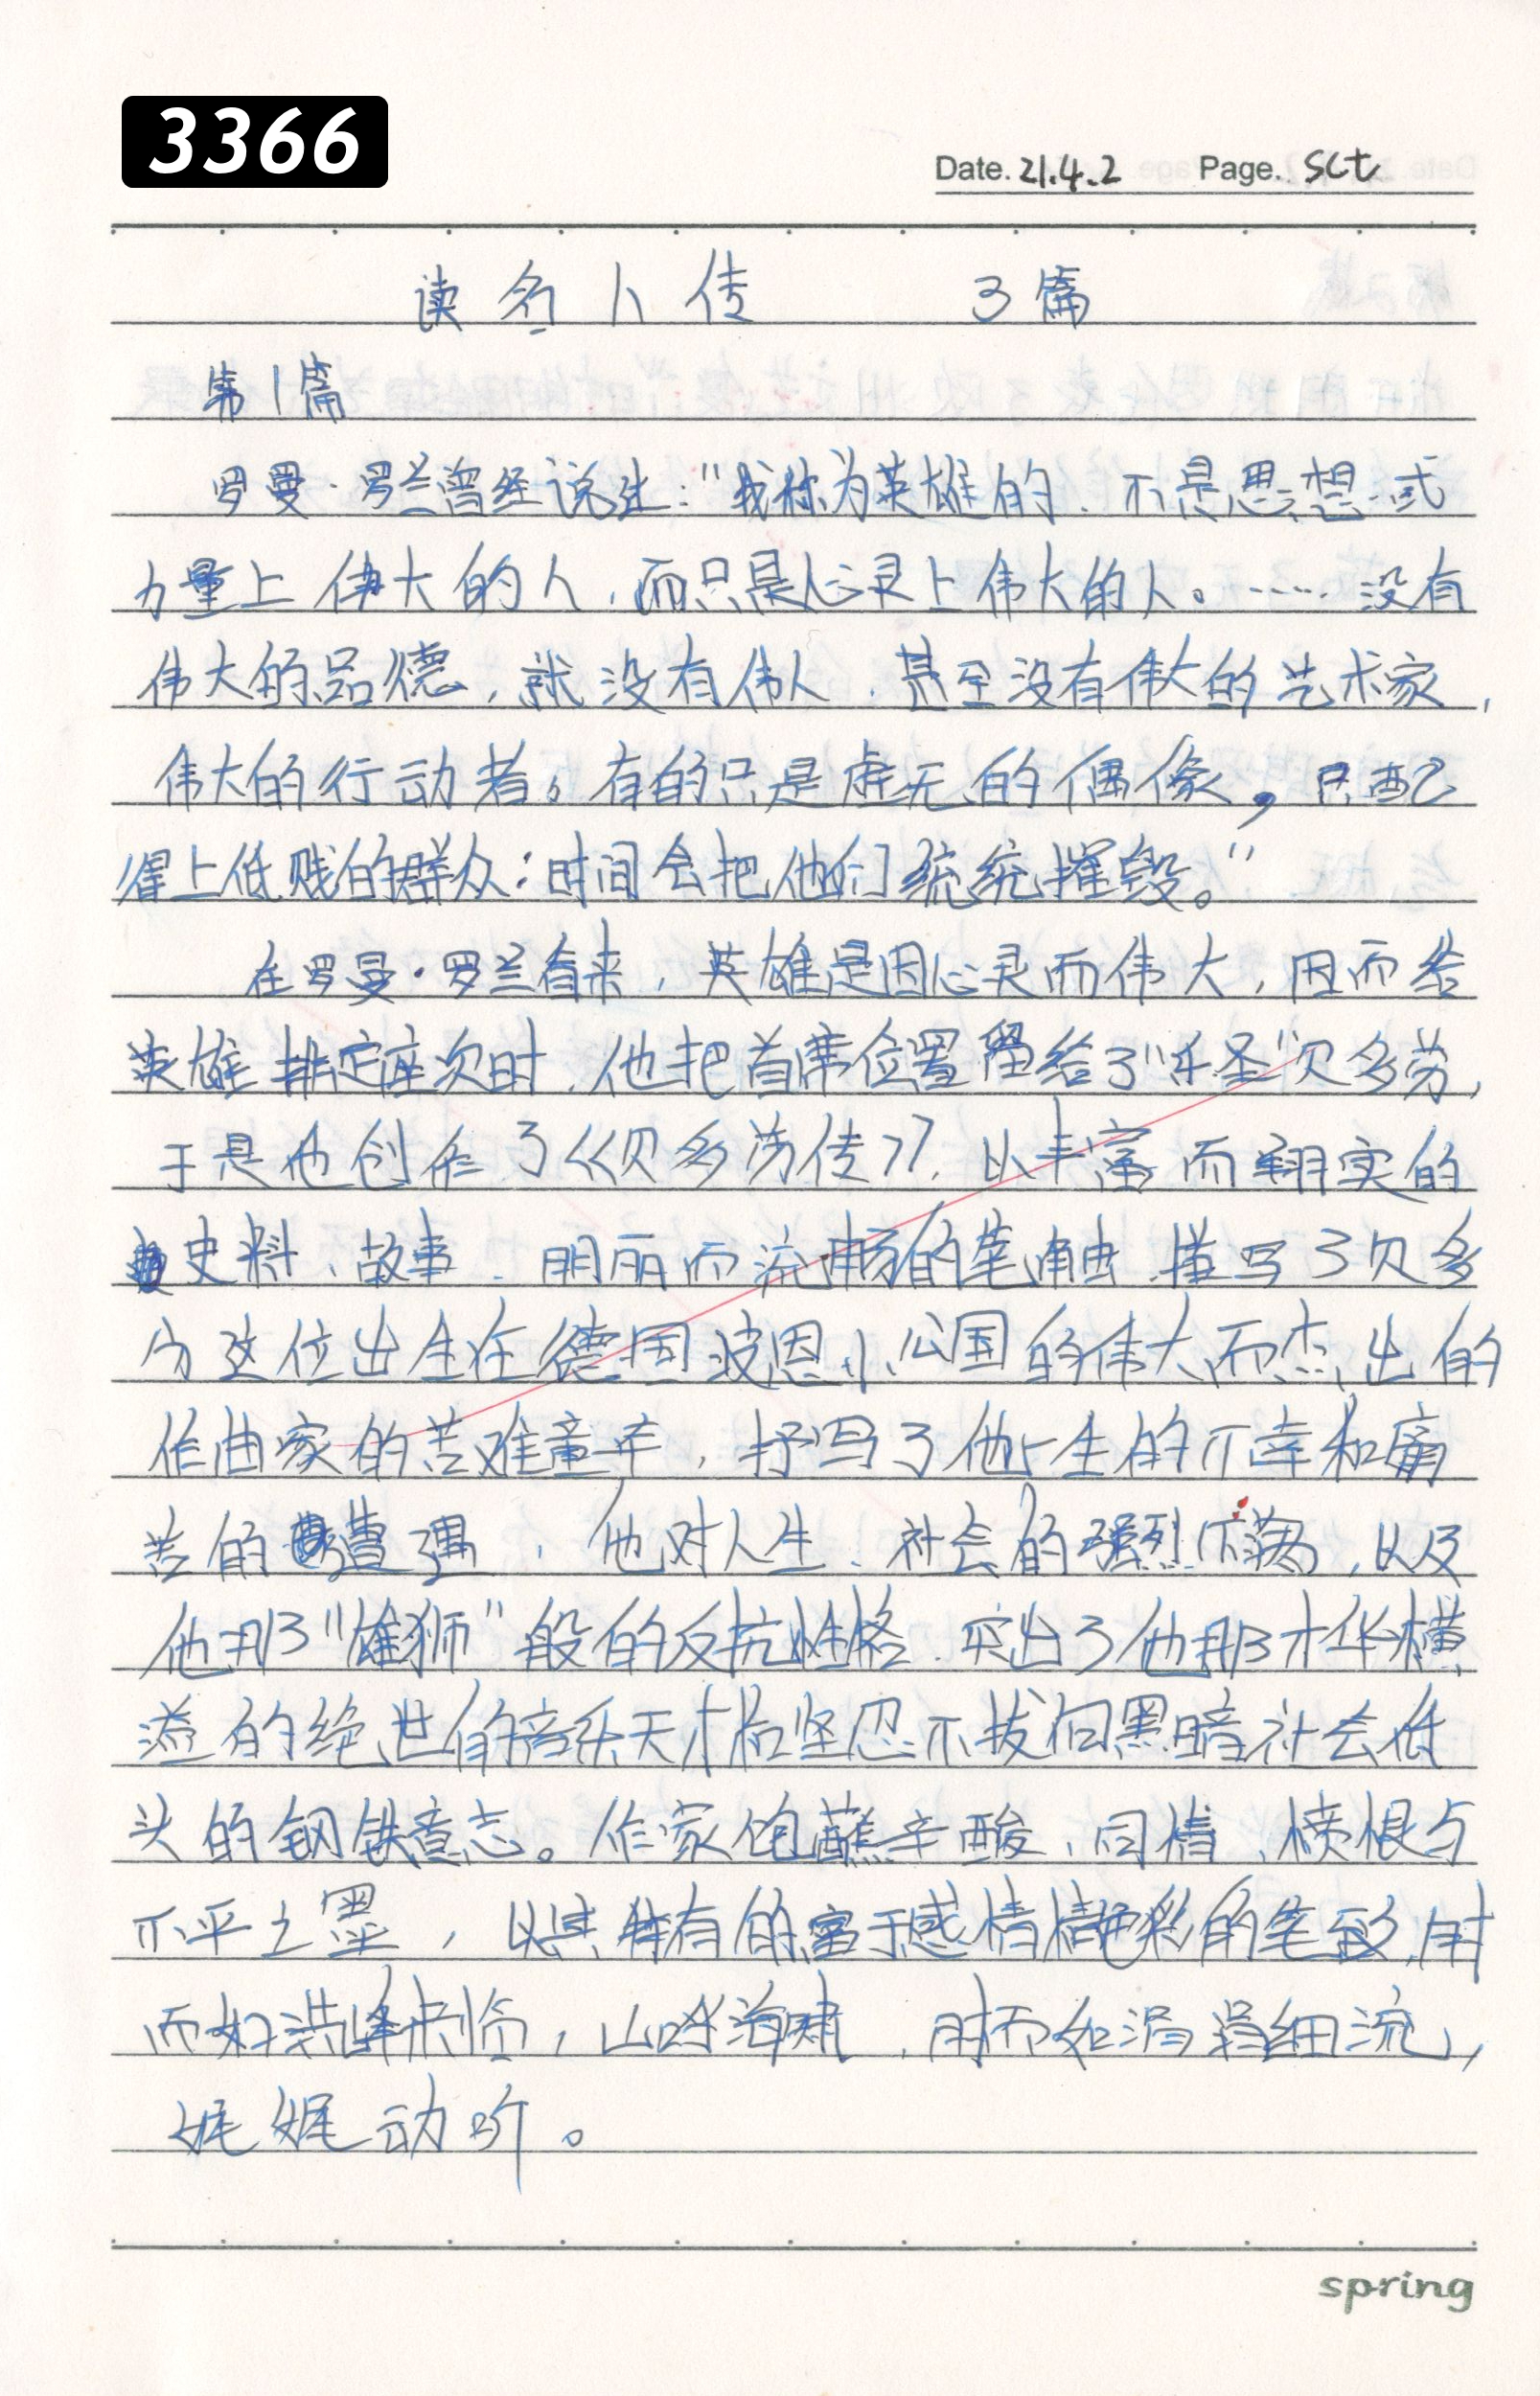 3366
Date. 21.4.2 Page. sct
读名人传 3篇
第1篇
罗曼·罗兰曾经说过:"我称为英雄的,不是思想或
力量上伟大的人,而只是心灵上伟大的人。……没有
伟大的品德,就没有伟人,甚至没有伟大的艺术家,
伟大的行动者。有的只是虚无的偶像,只配
得上低贱的群众:时间会把他们统统摧毁。"
在罗曼·罗兰看来,英雄是因心灵而伟大,因而给
英雄排定座次时,他把首席位置留给了"乐圣"贝多芬,
于是他创作了《贝多芬传》,以丰富而翔实的
史料、故事、明丽而流畅的笔触,描写了贝多
芬这位出生在德国波恩小公国的伟大而杰出的
作曲家的苦难童年,抒写了他一生的不幸和痛
苦的遭遇,他对人生、社会的强烈不满,以及
他那"雄狮"般的反抗性格,突出了他那才华横
溢的绝世的音乐天才和坚忍不拔向黑暗社会低
头的钢铁意志。作家饱蘸辛酸、同情、愤恨与
不平之墨,以其特有的富于感情色彩的笔致,时
而如洪峰来临,山呼海啸,时而如涓涓细流,
娓娓动听。
spring